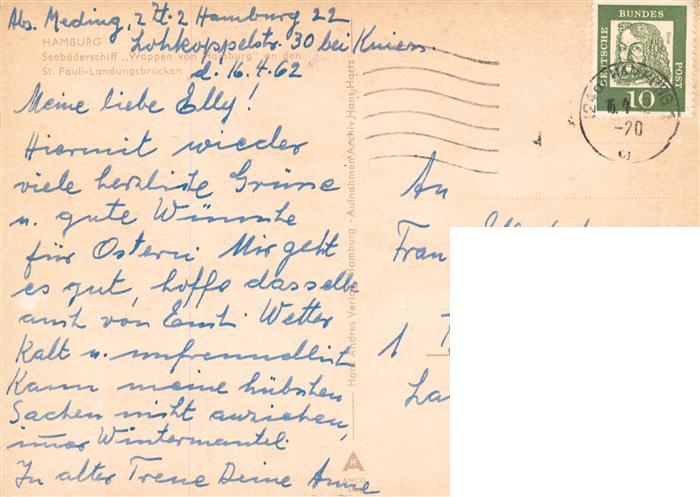 Abs. Meding, z Zt. 2 Hamburg 22
Lohkoppelstr. 30 bei Kniess.
d. 16.4.62
HAMBURG
Seebäderschiff „Wappen von Hamburg" an den
St. Pauli-Landungsbrücken
Meine liebe Elly!
Hiermit wieder
viele herzliche Grüsse
u. gute Wünsche
für Ostern. Mir geht
es gut, hoffe dasselbe
auch von Euch. Wetter
Kalt u. unfreundlich
Kann meine hübschen
Sachen nicht anziehen,
immer Wintermantel.
In alter Treue Deine Anne
Hans Andres Verlag Hamburg - Aufnahmen: Archiv Hans Hartz
DEUTSCHE
BUNDES
POST
10
HAMBURG
-20
An
Frau
1
La